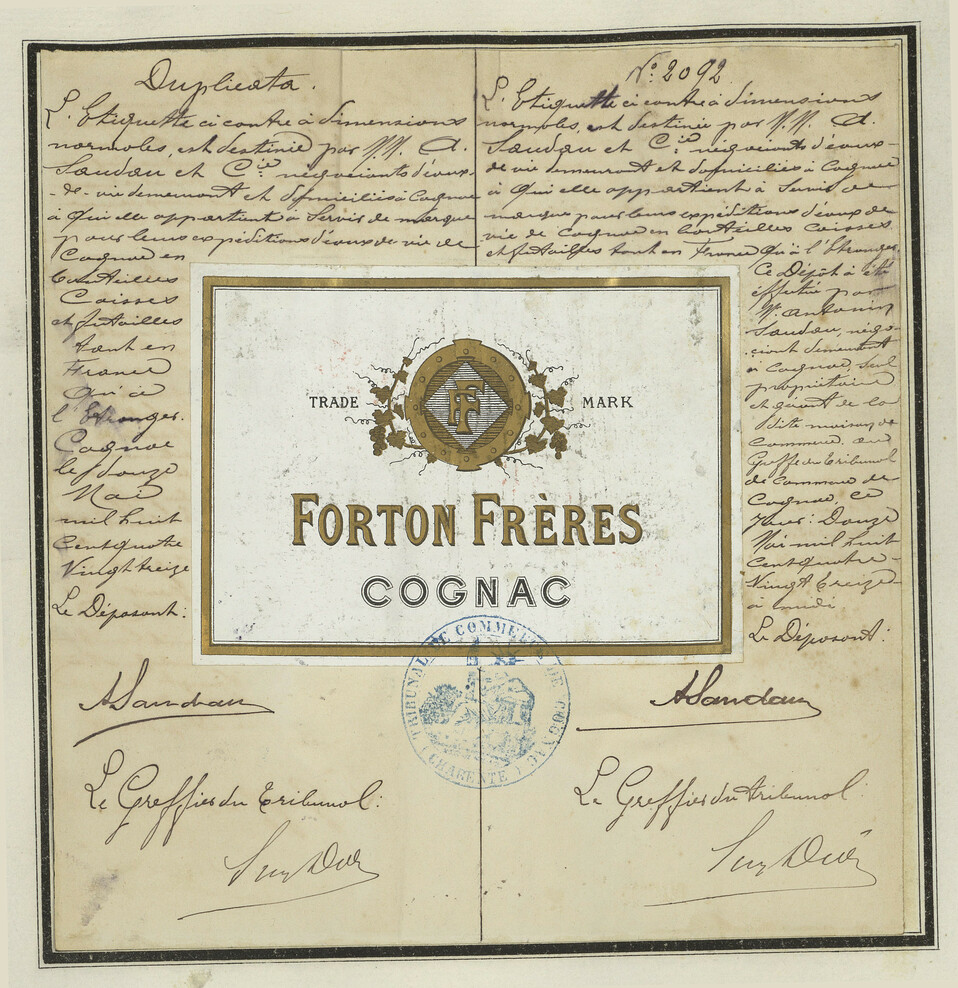 Duplicata.
L'Etiquette ci contre à dimensions
normales, est destinée par M.M. A.
Saudau et Cie: négociants d'eaux-
-de-vie demeurant et domiciliés à Cognac
à qui elle appartient à servir de marque
pour leurs expéditions d'eaux de vie de
Cognac en
bouteilles
Caisses
et futailles
tant en
France
qu'à
l'Etranger.
Cognac
le douze
Mai
mil huit
cent quatre
Vingt treize
Le Déposant:
ASaudau
Le Greffier du Tribunal:
No: 2092
L'Etiquette ci contre à dimensions
normales, est destinée par M.M. A.
Saudau et Cie négociants d'eaux-
de vie demeurant et domiciliés à Cognac
à qui elle appartient à servir de
marque pour leurs expéditions d'eaux de
vie de Cognac en bouteilles Caisses
et futailles tant en France qu'à l'Etranger.
Ce Dépôt à été
effectué par
M. Antonin
Saudau, négo-
ciant demeurant
à Cognac, seul
propriétaire
et gérant de la
dite maison de
Commerce, au
Greffe du Tribunal
de Commerce de
Cognac, ce
Jour: Douze
Mai mil huit
cent quatre-
Vingt treize-
à midi
Le Déposant:
ASaudau
Le Greffier du tribunal:
TRADE MARK
FF
FORTON FRÈRES
COGNAC
TRIBUNAL DE COMMERCE DE COGNAC
(CHARENTE)